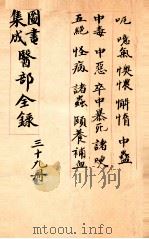 呃 噫氣 懊憹 懈惰 中蠱
中毒 中惡 卒中暴死 諸哽
五絕 怪病 諸蟲 頤養補益
圖書集成 醫部全錄
三十九冊